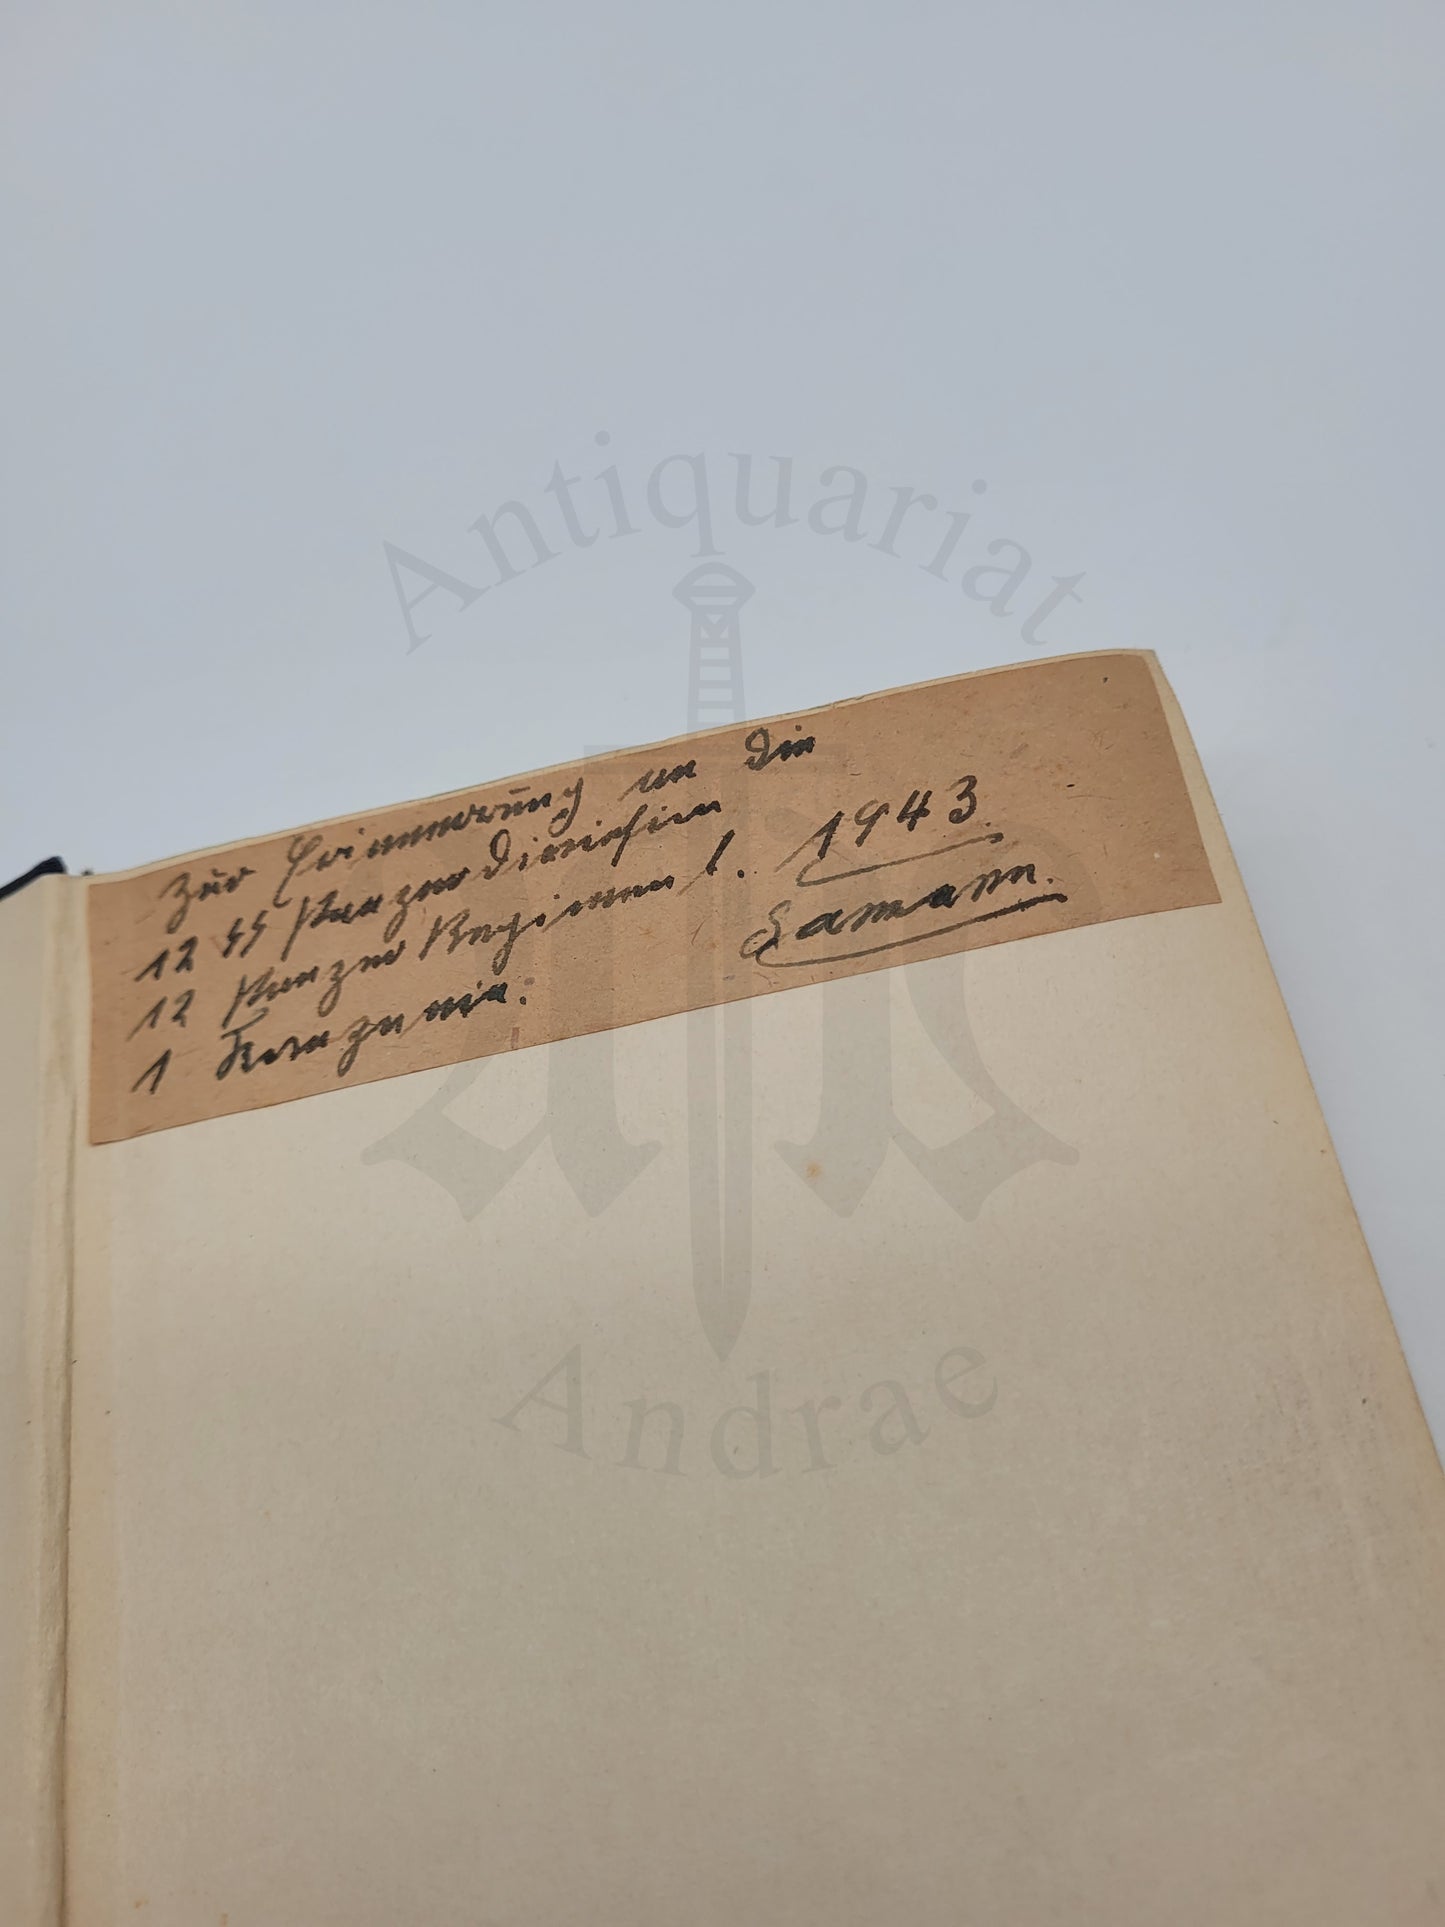 Antiquariat
Zur Erinnerung an die
12 SS Panzerdivision
12 Panzer Regiment. 1943
1 Lamann.
Andrae